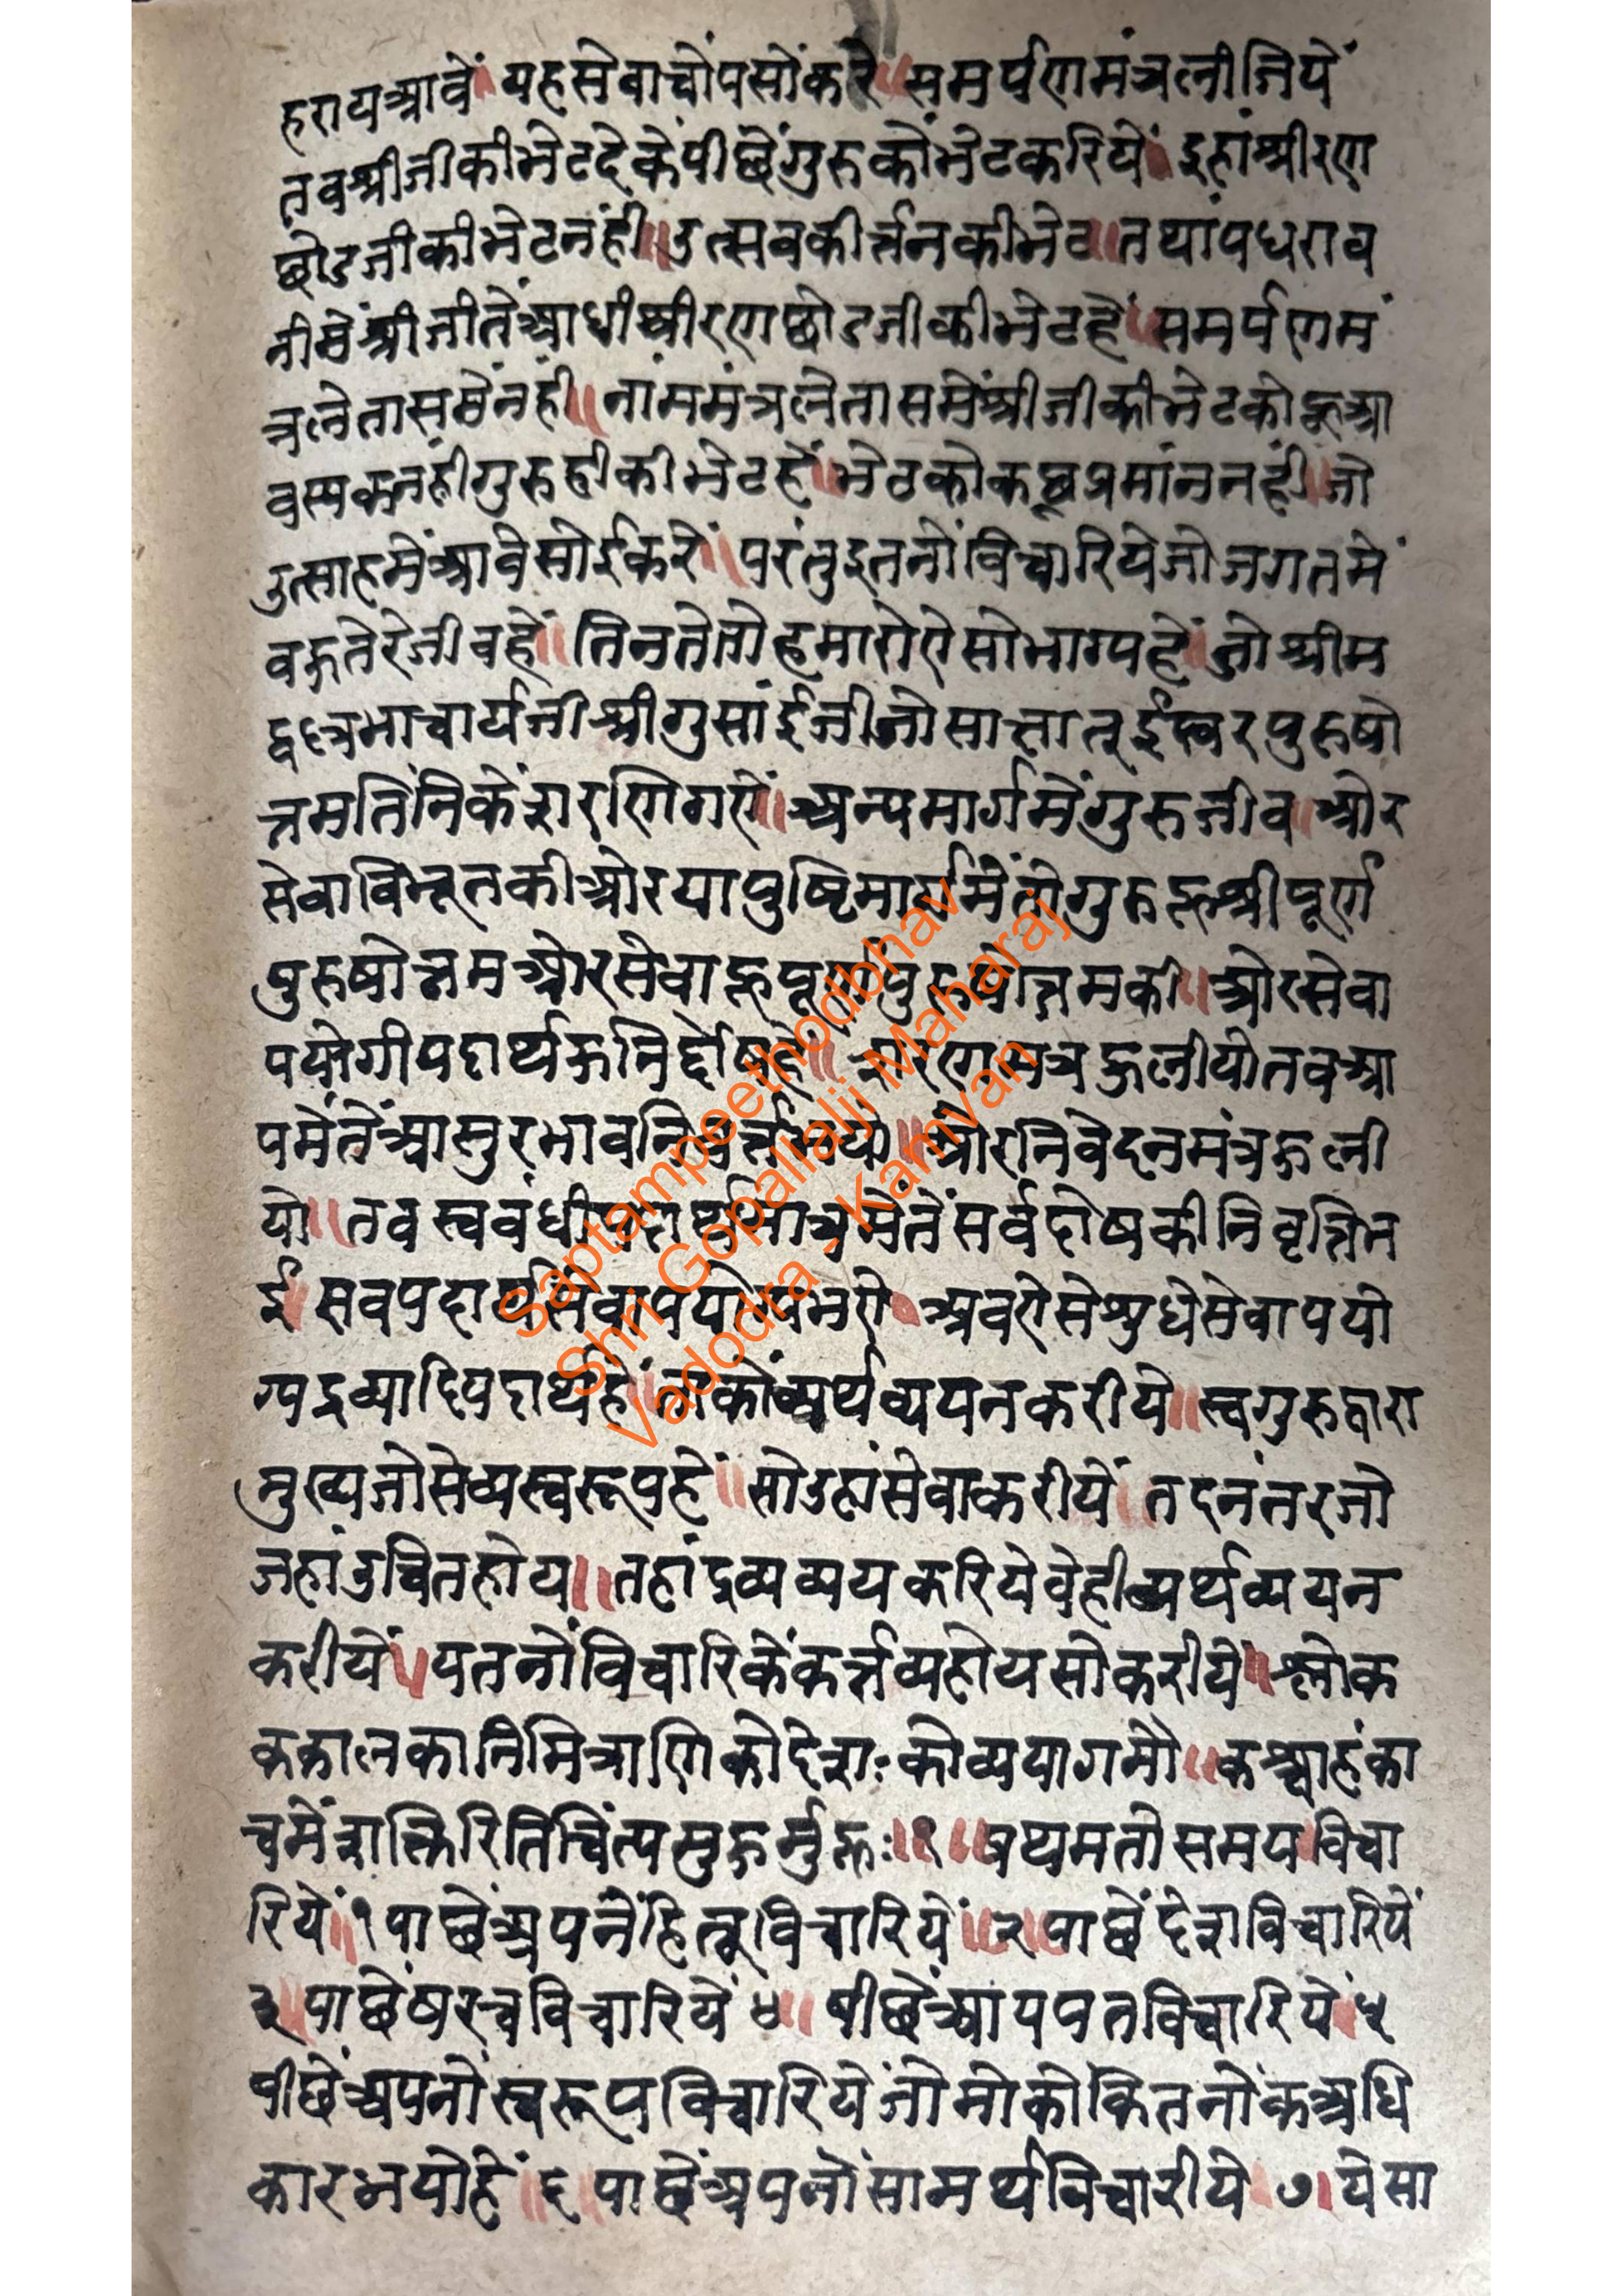 हरायआवें॥ यहसेवाचोंपसोंकरे॥ समर्पणमंत्रलीजियें
तवश्रीजीकीभेटदेकेंपीछेंगुरुकोंभेटकरियें॥ इहांश्रीरण
छोडजीकीभेटनंही॥उत्सवकीर्त्तनकीभेट॥तथांपधराव
नीसेंश्रीजीतेंआधीश्रीरणछोडजीकीभेटहें॥समर्पणमं
त्रलेतासमेंनंही॥नांममंत्रलेतासमेंश्रीजीकीभेटकोहूआ
वस्यकनंहीगुरुहीकीभेटहें॥भेटकोकछुप्रमांननंही॥जो
उत्साहमेंआवेसोईकरें॥परंतुइतनोंविचारियेजोजगतमें
वहुतेरेजीवहें॥तिनतेतोहमारोऐसोभाग्यहें॥जोश्रीम
द्वल्लभाचार्यजीश्रीगुसांईजीजोसाक्षातूईस्वरपुरुषो
त्तमतिंनिकेंशरणिगऐं॥अन्यमार्गमेंगुरुजीव॥ओर
सेवाविभूतकीओरयापुष्टिमार्गमेंतोगुरुहूश्रीपूर्ण
पुरुषोत्तमओरसेवाहूपूर्णपुरुषोत्तमकी॥ओरसेवा
पयोगीपदार्थहूनिर्द्दोषहें॥ शरणमंत्रहूलीयोतवआ
पमेंतेंआसुरभावनिवर्त्तभयो॥ओरनिवेदनमंत्रहूली
यो॥तवस्ववंधीपदार्थमात्रमेंतेंसर्वदोषकीनिवृत्तिभ
ई॥सवपदार्थसेवापयोग्यभऐ॥अवऐसेशुधेसेवापयो
ग्यद्रव्यादिपदार्थहें॥ताकोंव्यर्थव्ययनकरीये॥स्वगुरुद्वारा
मुख्यजोसेव्यस्वरूपहें॥सोउहांसेवाकरीयें॥तदनंतरजो
जहांउचितहोय॥तहांद्रव्यव्ययकरियेवेहीव्यर्थव्ययन
करीयें॥यतनोंविचारिकेंकर्त्तव्यहोयसोकरीये॥श्लोक
ककालकानिमित्राणिकोदेशःकोव्ययागमौ॥कश्चाहंका
चमेंशक्तिरितिचिंत्यमुहुर्मुहूः॥१॥प्रथमतोसमयविचा
रियें॥१पाछेंअपनेंहितूविचारियें॥२॥पाछेंदेशविचारियें
३॥पाछेंषरचविचारियें४॥ पीछेंआयपतविचारियें५
पीछेंअपनोंस्वरूपविचारियेंजोमोकोंकितनोंकअधि
कारभयोहें॥६॥पाछेंअपनोंसामर्थविचारीये॥७॥येसा
Saptampeethodbhav
Shri Gopallalji Maharaj
Vadodra - Kamvan